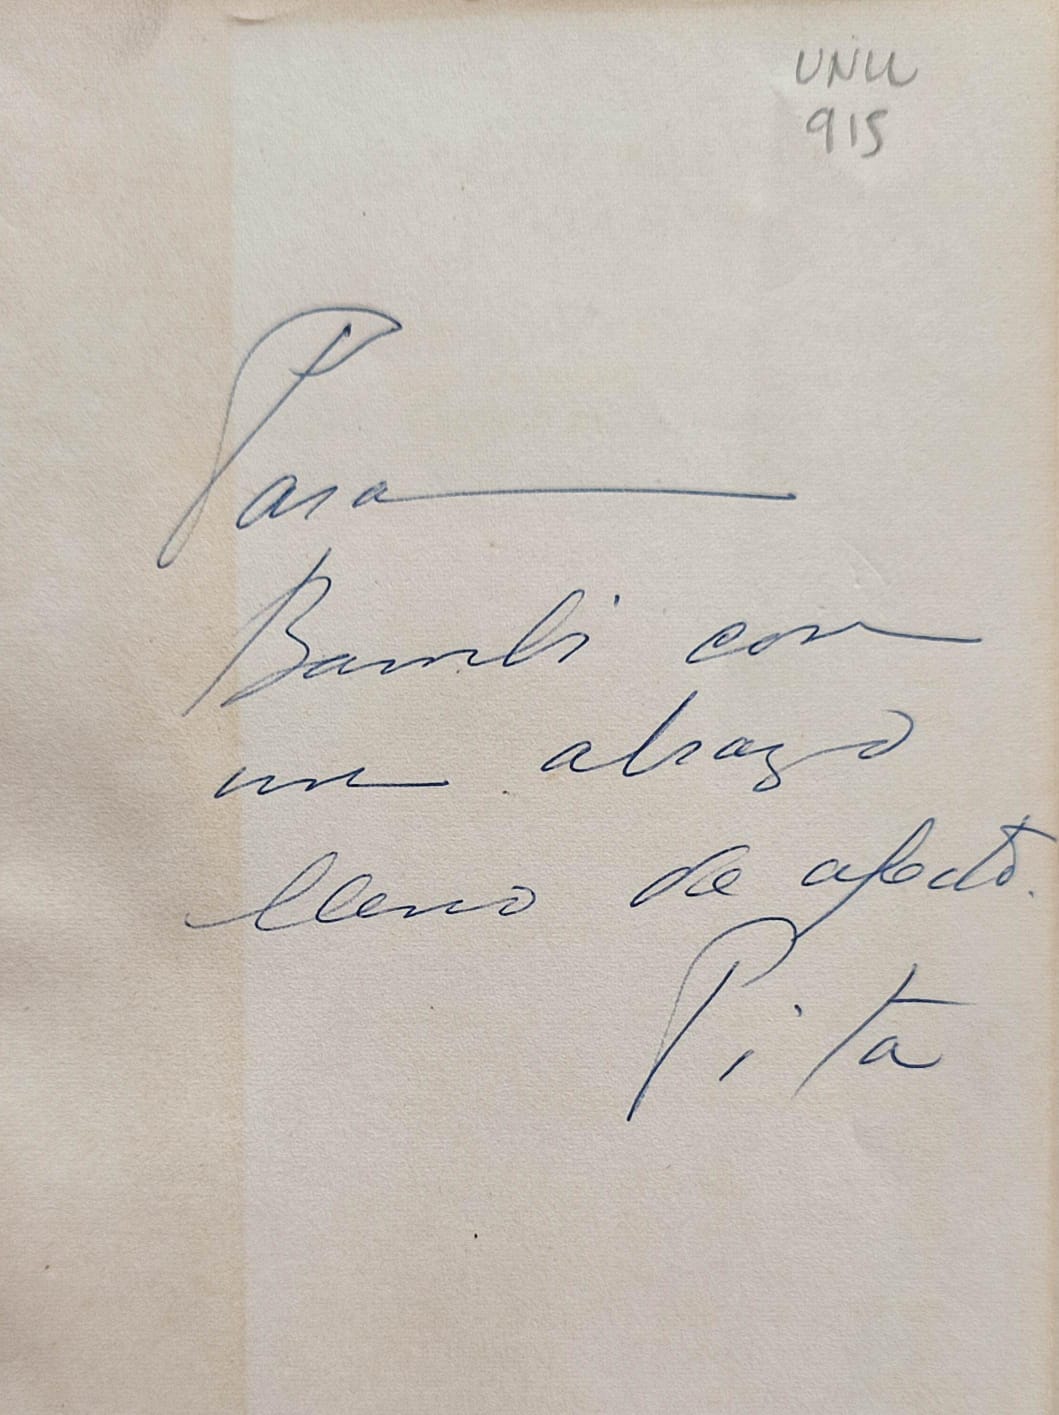 UNLL
915
Para
Bambi con
un abrazo
lleno de afecto.
Pita